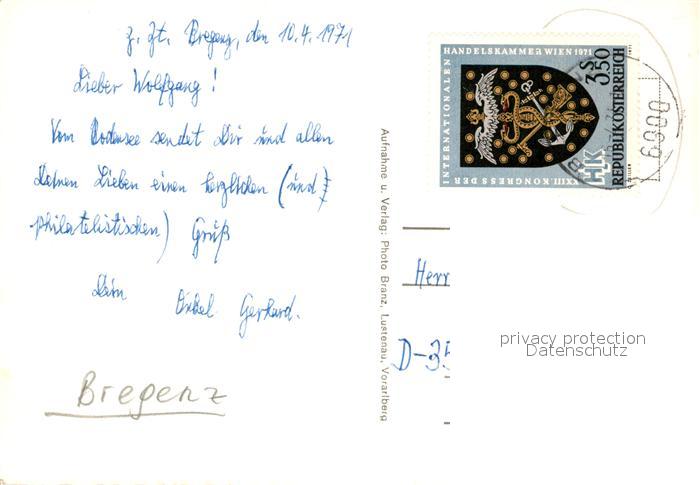 z. Zt. Bregenz, den 10.4.1971
Lieber Wolfgang!
Vom Bodensee sendet Dir und allen
Deinen Lieben einen herzlichen (und
philatelistischen) Gruß
Dein
Onkel Gerhard.
Bregenz
Aufnahme u. Verlag: Photo Branz, Lustenau, Vorarlberg
XXIII. KONGRESS DER
INTERNATIONALEN
HANDELSKAMMER WIEN 1971
S 3.50
REPUBLIK ÖSTERREICH
HK
6900
Herr
D-35
privacy protection
Datenschutz